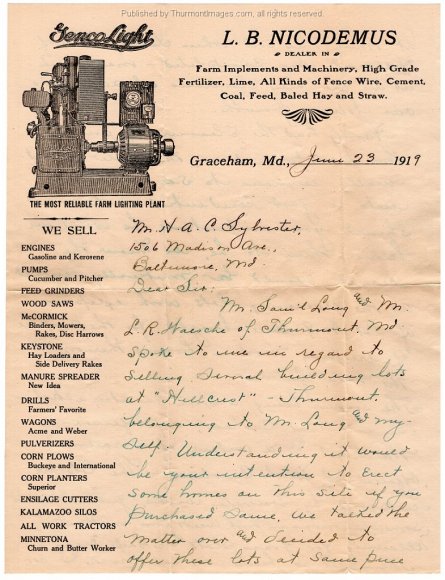 Published by ThurmontImages.com, all rights reserved.
Genco Light
L. B. NICODEMUS
DEALER IN
Farm Implements and Machinery, High Grade
Fertilizer, Lime, All Kinds of Fence Wire, Cement,
Coal, Feed, Baled Hay and Straw.
Graceham, Md., June 23 1919
THE MOST RELIABLE FARM LIGHTING PLANT
WE SELL
ENGINES
Gasoline and Kerosene
PUMPS
Cucumber and Pitcher
FEED GRINDERS
WOOD SAWS
McCORMICK
Binders, Mowers,
Rakes, Disc Harrows
KEYSTONE
Hay Loaders and
Side Delivery Rakes
MANURE SPREADER
New Idea
DRILLS
Farmers' Favorite
WAGONS
Acme and Weber
PULVERIZERS
CORN PLOWS
Buckeye and International
CORN PLANTERS
Superior
ENSILAGE CUTTERS
KALAMAZOO SILOS
ALL WORK TRACTORS
MINNETONA
Churn and Butter Worker
Mr. H. A. C. Sylvester,
1506 Madison Ave.,
Baltimore, Md
Dear Sir:
Mr. Sam'l Long and Mr.
L. R. Waesche of Thurmont, Md
spoke to me in regard to
selling several building lots
at "Hillcrest" - Thurmont.
belonging to Mr. Long and my-
self - Understanding it would
be your intention to Erect
some homes on this site if you
purchased same. We talked the
matter over and decided to
offer these lots at same price